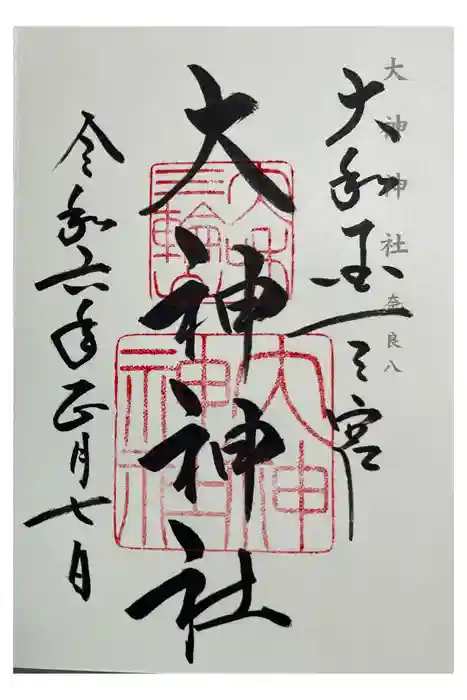 大神神社 奈良八
大和国一之宮
大神神社
大和
三輪山
大神
神社
令和六年正月七日